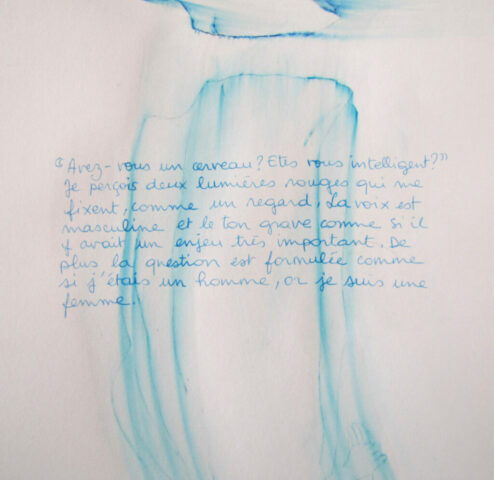 “Avez-vous un cerveau? Etes vous intelligent?”
Je perçois deux lumières rouges qui me
fixent, comme un regard. La voix est
masculine et le ton grave comme si il
y avait un enjeu très important. De
plus la question est formulée comme
si j'étais un homme, or je suis une
femme.